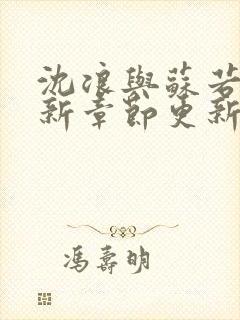 沈浪與蘇若
新章節更新
馮壽明